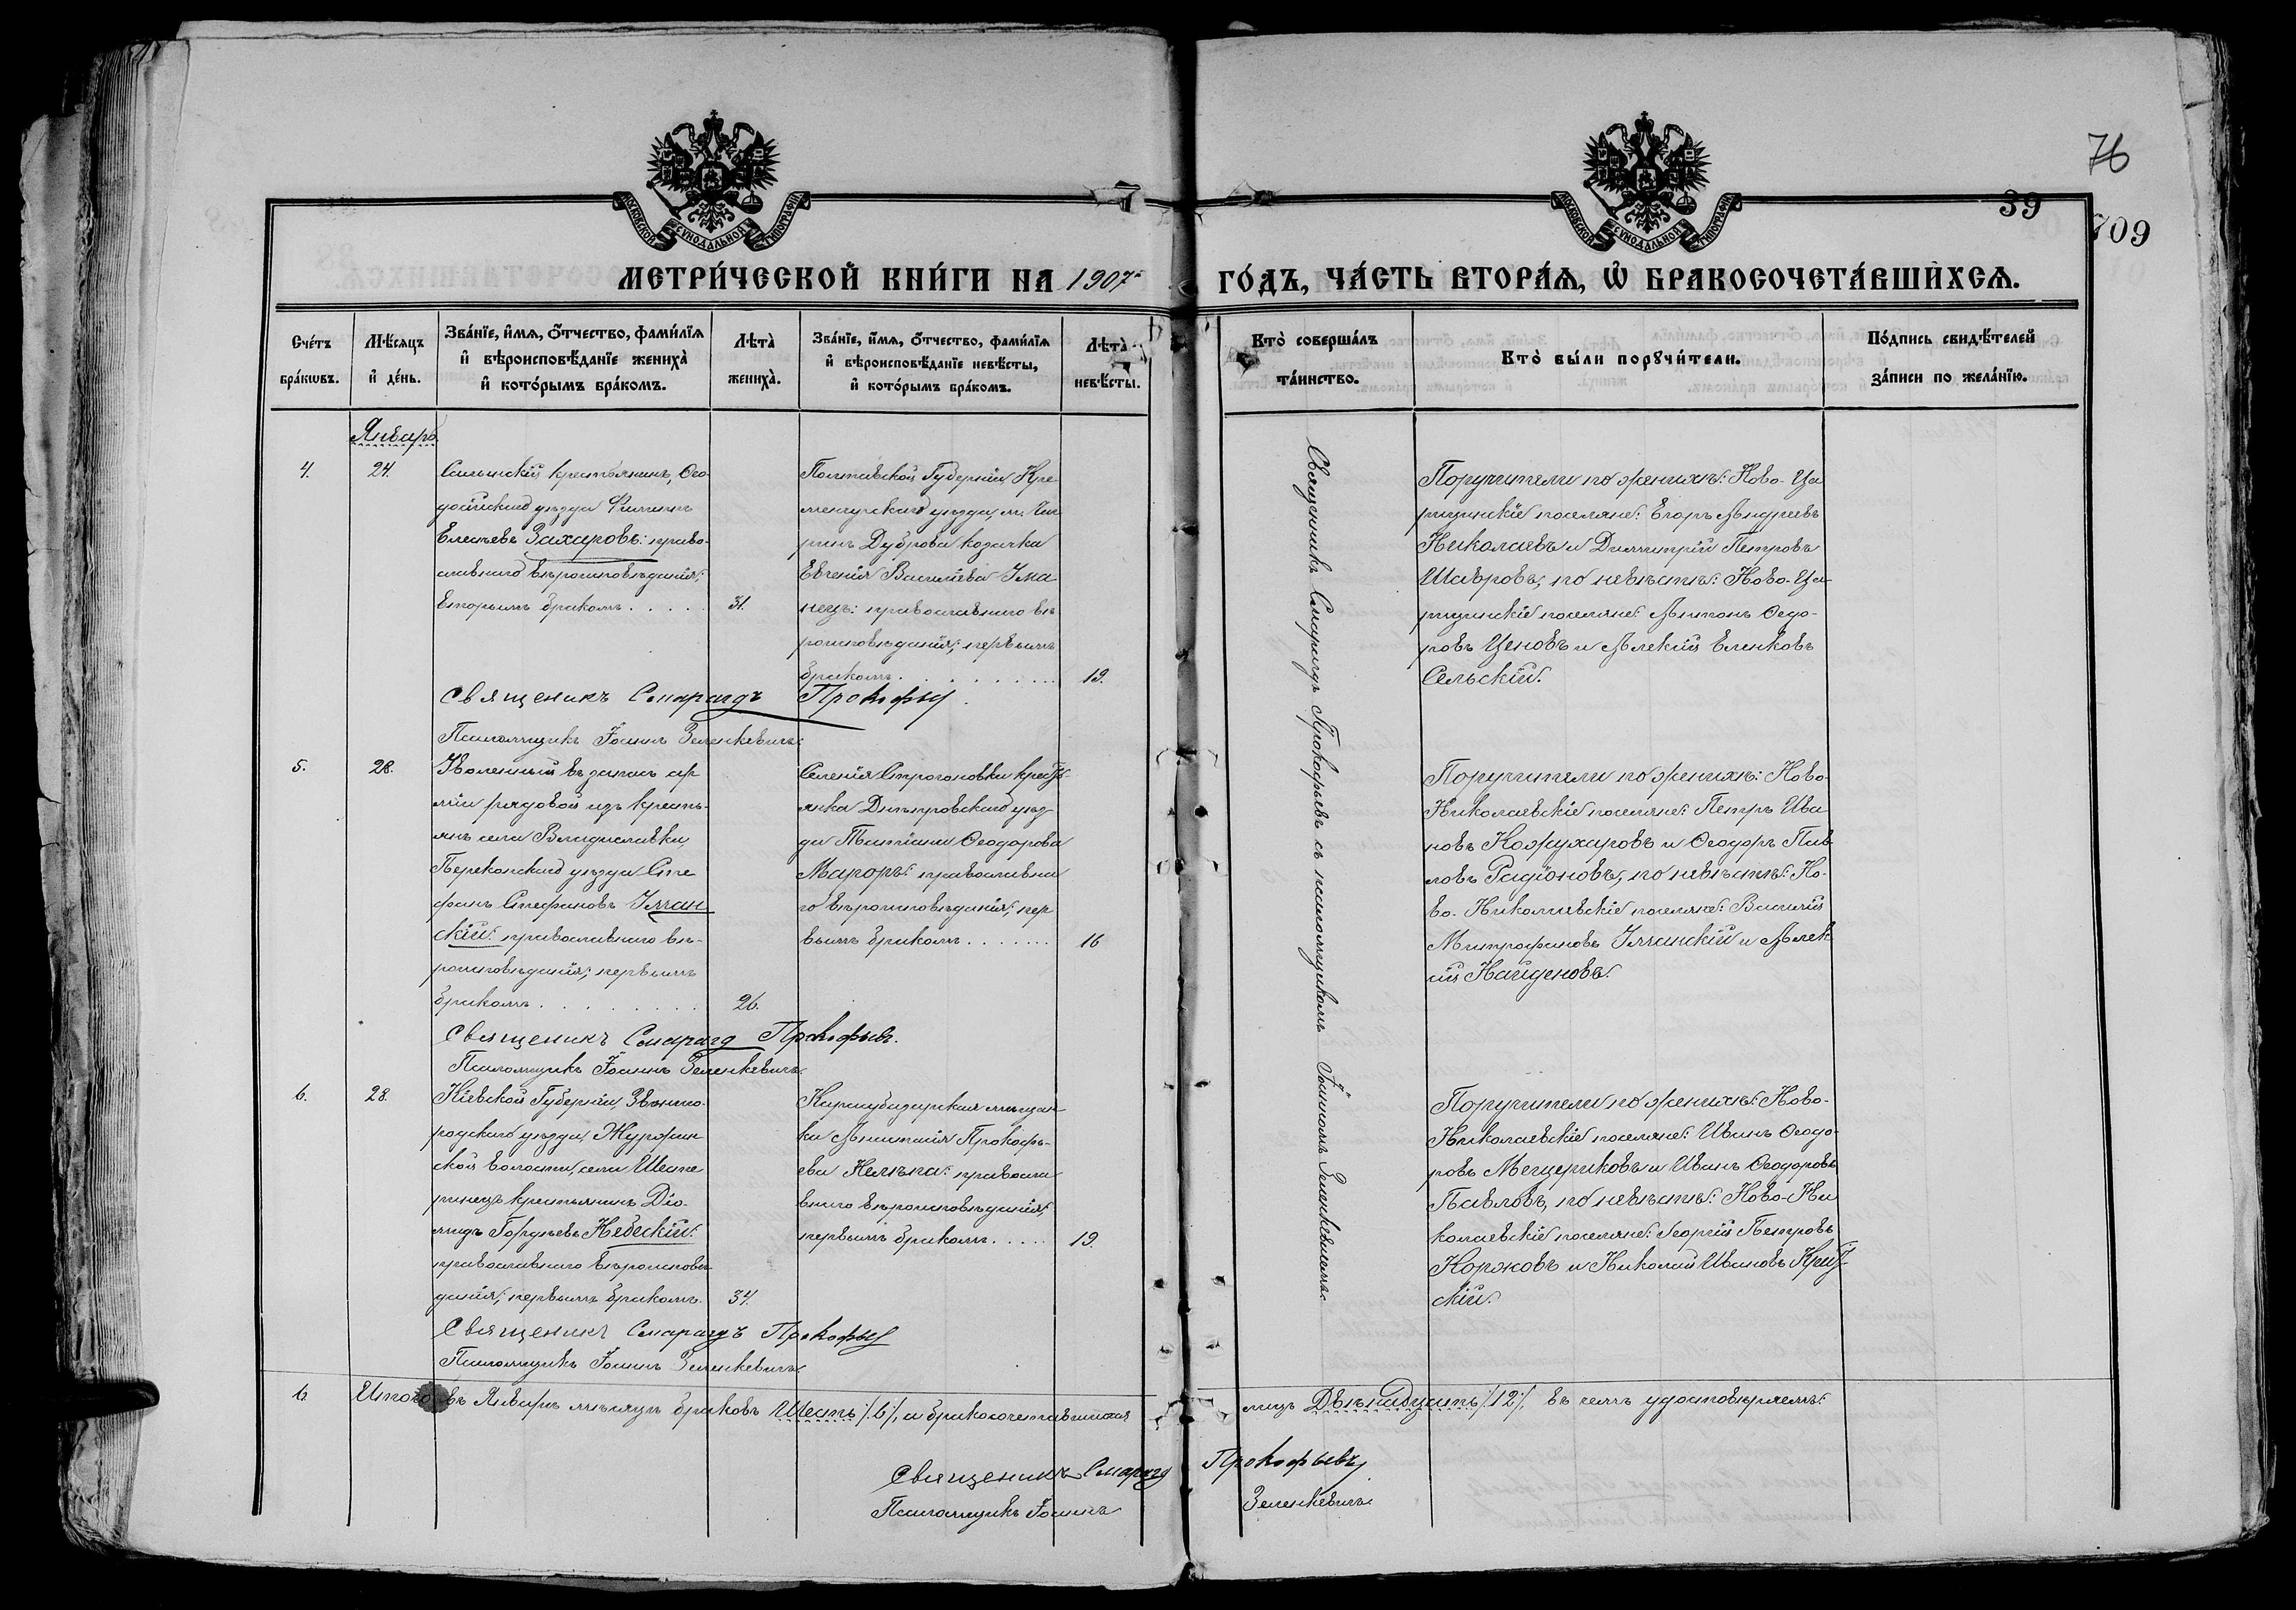 76
39
709
МОСКОВСКОЙ СѴНОДАЛЬНОЙ ТИПОГРАФІИ
МОСКОВСКОЙ СѴНОДАЛЬНОЙ ТИПОГРАФІИ
МЕТРИ́ЧЕСКОЙ КНИ́ГИ НА 1907й ГО́ДЪ, ЧА́СТЬ ВТОРА́Ѧ, Ѽ БРАКОСОЧЕТА́ВШИХСѦ.
Сче́тъ
бра́кѡвъ.
Мѣ́сяцъ
и҆ де́нь.
Зва́нїе, и҆́мѧ, ѻ҆́тчество, фами́лїѧ
и҆ вѣроисповѣ́данїе жениха̀
и҆ кото́рымъ бра́комъ.
Лѣта̀
жениха̀.
Зва́нїе, и҆́мѧ, ѻ҆́тчество, фами́лїѧ
и҆ вѣроисповѣ́данїе невѣ́сты,
и҆ кото́рымъ бра́комъ.
Лѣта̀
невѣ́сты.
Кто̀ соверша́лъ
та́инство.
Кто̀ бы́ли порꙋчи́тели.
По́дпись свидѣ́телей
за́писи по жела́нїю.
Январь
4.
24.
крестьянинъ, Ѳео-
досійскаго уѣзда Филиппъ
Елисѣевъ Захаровъ: право-
славнаго вѣроисповѣданія;
вторымъ бракомъ . . . . .
31.
Полтавской Губерніи Кре-
менчугскаго уѣзда, м. Чи
гринъ Дуброва козачка
Евгенія Василіева Ума
нецъ: православнаго вѣ
роисповѣданія; первымъ
бракомъ . . . . . . . .
19.
Поручители по женихѣ: Ново-Ца
рицинскіе поселяне: Егоръ Андреевъ
Николаевъ и Димитрій Петровъ
Шавровъ; по невѣстѣ: Ново-Ца-
рицинскіе поселяне: Антонъ Ѳедо-
ровъ Ценовъ и Алексій Еленковъ
Сельскій.
Священикъ Смарагдъ Прокофьев
Псаломщикъ Іоаннъ Зеленкевичъ.
5.
28.
Уволенный въ запасъ ар
міи рядовой изъ кресть-
янъ села Владиславки,
Перекопскаго уѣзда Сте
фанъ Стефановъ Улган
скій: православнаго вѣ-
роисповѣданія; первымъ
бракомъ . . . . . . . .
26.
Селенія Строгоновки крестья-
янка Днѣпровскаго уѣз
да Татіана Ѳеодорова
Мароръ: православна
го вѣроисповѣданія; пер
вымъ бракомъ . . . . . . .
16
Поручители по женихѣ: Ново-
Николаевскіе поселяне: Петръ Ива
новъ Кожухаровъ и Ѳеодоръ Пав
ловъ Радіоновъ; по невѣстѣ: Но-
во-Николаевскіе поселяне: Василій
Митрофановъ Улганскій и Алек
ій Найденовъ.
Священикъ Смарагд Прокофьевъ.
Псаломщикъ Іоаннъ Зеленкевичъ.
6.
28.
Кіевской Губерніи, Звениго-
родскаго уѣзда, Журжин
ской волости, села Шесте
ринецъ крестьянинъ Діо-
мидъ Гордѣевъ Небескій:
православнаго вѣроисповѣ-
данія; первымъ бракомъ.
34.
Карасубазарская мѣщан-
ка Анастасія Прокофь-
ева православ
внаго вѣроисповѣданія;
первымъ бракомъ. . . . .
19.
Поручители по женихѣ: Ново-
Николаевскіе поселяне: Иванъ Ѳеодо-
ровъ Мещериковъ и Иванъ Ѳеодоровъ
Павловъ; по невѣстѣ: Ново-Ни
колаевскіе поселяне: Георгій Петровъ
Коржовъ и Николай Ивановъ
скій.
Священикъ Смарагдъ Прокофьев
Псаломщикъ Іоаннъ Зеленкевичъ.
Священникъ Смарагдъ Прокофьевъ съ псаломщикомъ Іоанномъ Зеленкевичемъ.
6. Итого въ Январѣ мѣсяцѣ браковъ Шесть /6/, а бракосочетавшихся лицъ Двѣнадцать /12/, въ чемъ удостовѣряемъ:
Священикъ Смарагд Прокофьевъ
Псаломщикъ Іоаннъ Зеленкевичъ.